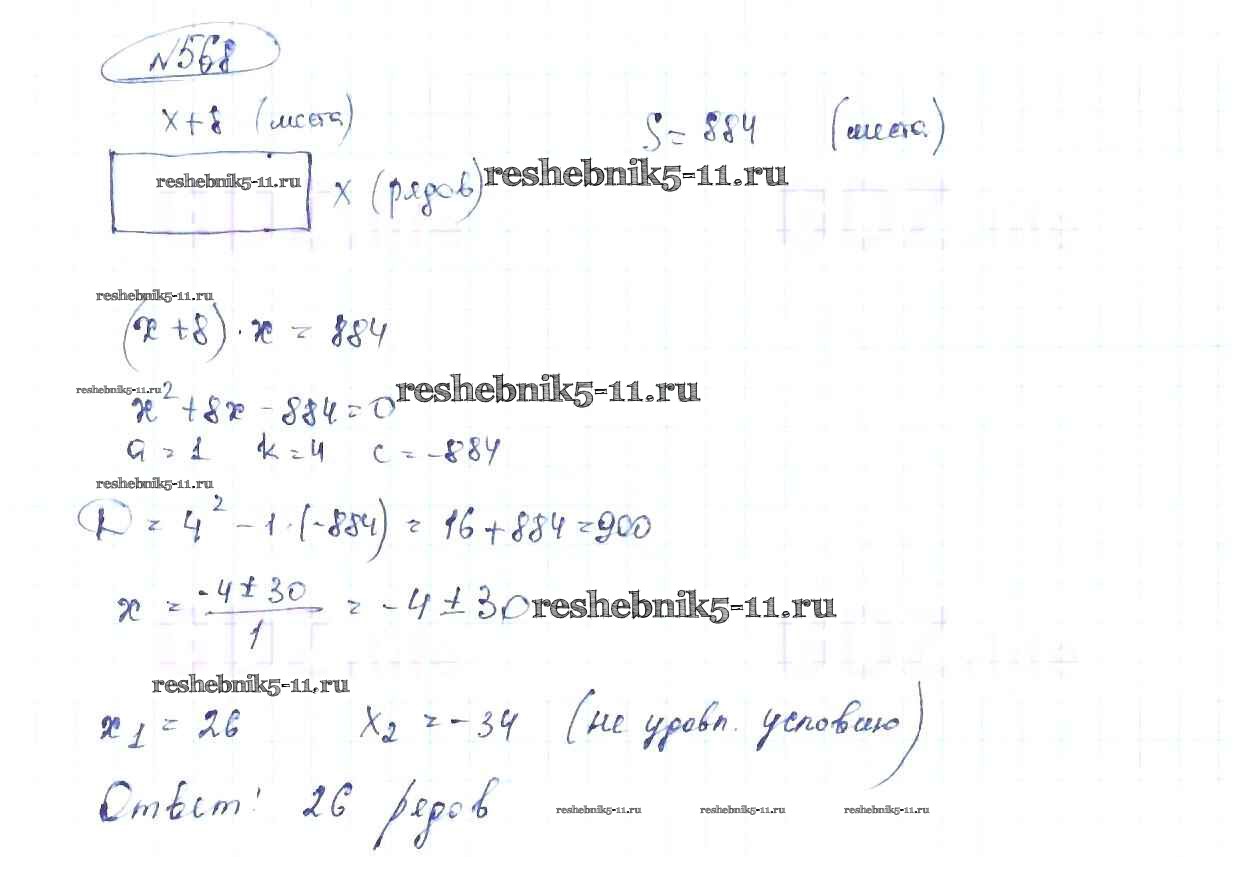 №568
x+8 (места)
S = 884 (места)
reshebnik5-11.ru x (рядов) reshebnik5-11.ru
reshebnik5-11.ru
(x+8)·x = 884
reshebnik5-11.ru reshebnik5-11.ru
x²+8x-884=0
a=1 k=4 c=-884
reshebnik5-11.ru
D = 4² - 1·(-884) = 16+884=900
x = (-4±30)/1 = -4±30 reshebnik5-11.ru
reshebnik5-11.ru
x₁ = 26 x₂ = -34 (не удовл. условию)
Ответ: 26 рядов reshebnik5-11.ru reshebnik5-11.ru reshebnik5-11.ru